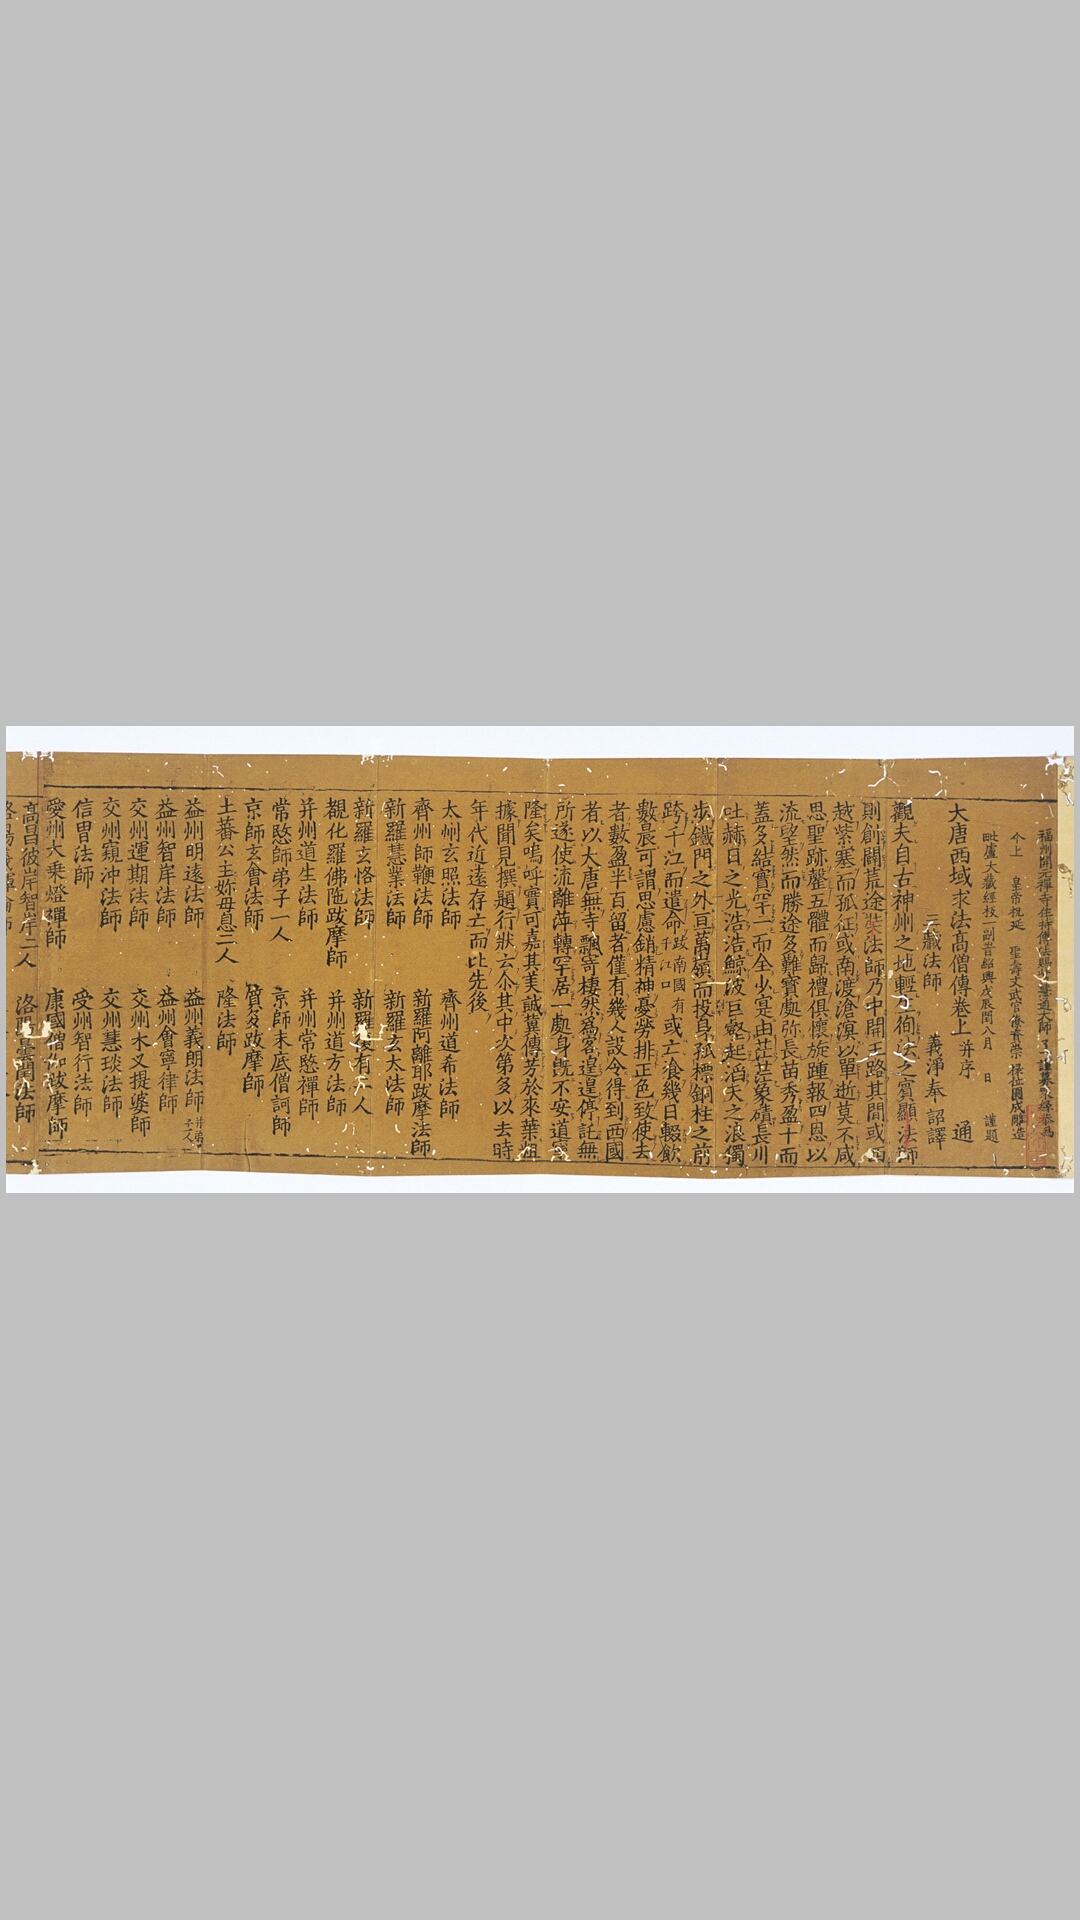 福州開元禪寺住持傳法賜紫慧通大師了一謹募衆緣恭爲
今上 皇帝祝延 聖壽文武官僚資崇 祿位圓成雕造
毗盧大藏經板一副旹紹興戊辰閏八月 日 謹題
大唐西域求法高僧傳卷上 并序 通
三藏法師 義淨奉 詔譯
觀夫自古神州之地輕生徇法之賓顯法師
則創闢荒途奘法師乃中開王路其間或西
越紫塞而孤征或南渡滄溟以單逝莫不咸
思聖跡罄五體而歸禮俱懷旋踵報四恩以
流望然而勝途多難寶處弥長苗秀盈十而
蓋多結實罕一而全少寔由茫茫象磧長川
吐赫日之光浩浩鯨波巨壑起滔天之浪獨
步鐵門之外亘萬嶺而投身孤標銅柱之前
跨千江而遣命跋南國有千江口或亡飡幾日輟飲
數晨可謂思慮銷精神憂勞排正色致使去
者數盈半百留者僅有幾人設令得到西國
者以大唐無寺飄寄棲然爲客遑遑停託無
所遂使流離萍轉罕居一處身既不安道寧
隆矣嗚呼實可嘉其美誠冀傳芳於來葉粗
據聞見撰題行狀云尒其中次第多以去時
年代近遠存亡而比先後
太州玄照法師 齊州道希法師
齊州師鞭法師 新羅阿離耶跋摩法師
新羅慧業法師 新羅玄太法師
新羅玄恪法師 新羅復有二人
覩化羅佛陁跋摩師 并州道方法師
并州道生法師 并州常慜禪師
常慜師弟子一人 京師末底僧訶師
京師玄會法師 質多跋摩師
土蕃公主妳母息二人 隆法師
益州明遠法師 益州義朗法師 并弟子一人
益州智岸法師 益州會寧律師
交州運期法師 交州木叉提婆師
交州窺沖法師 交州慧琰法師
信胄法師 受州智行法師
愛州大乗燈禪師 康國僧伽跋摩師
高昌彼岸智岸二人 洛陽曇閏法師